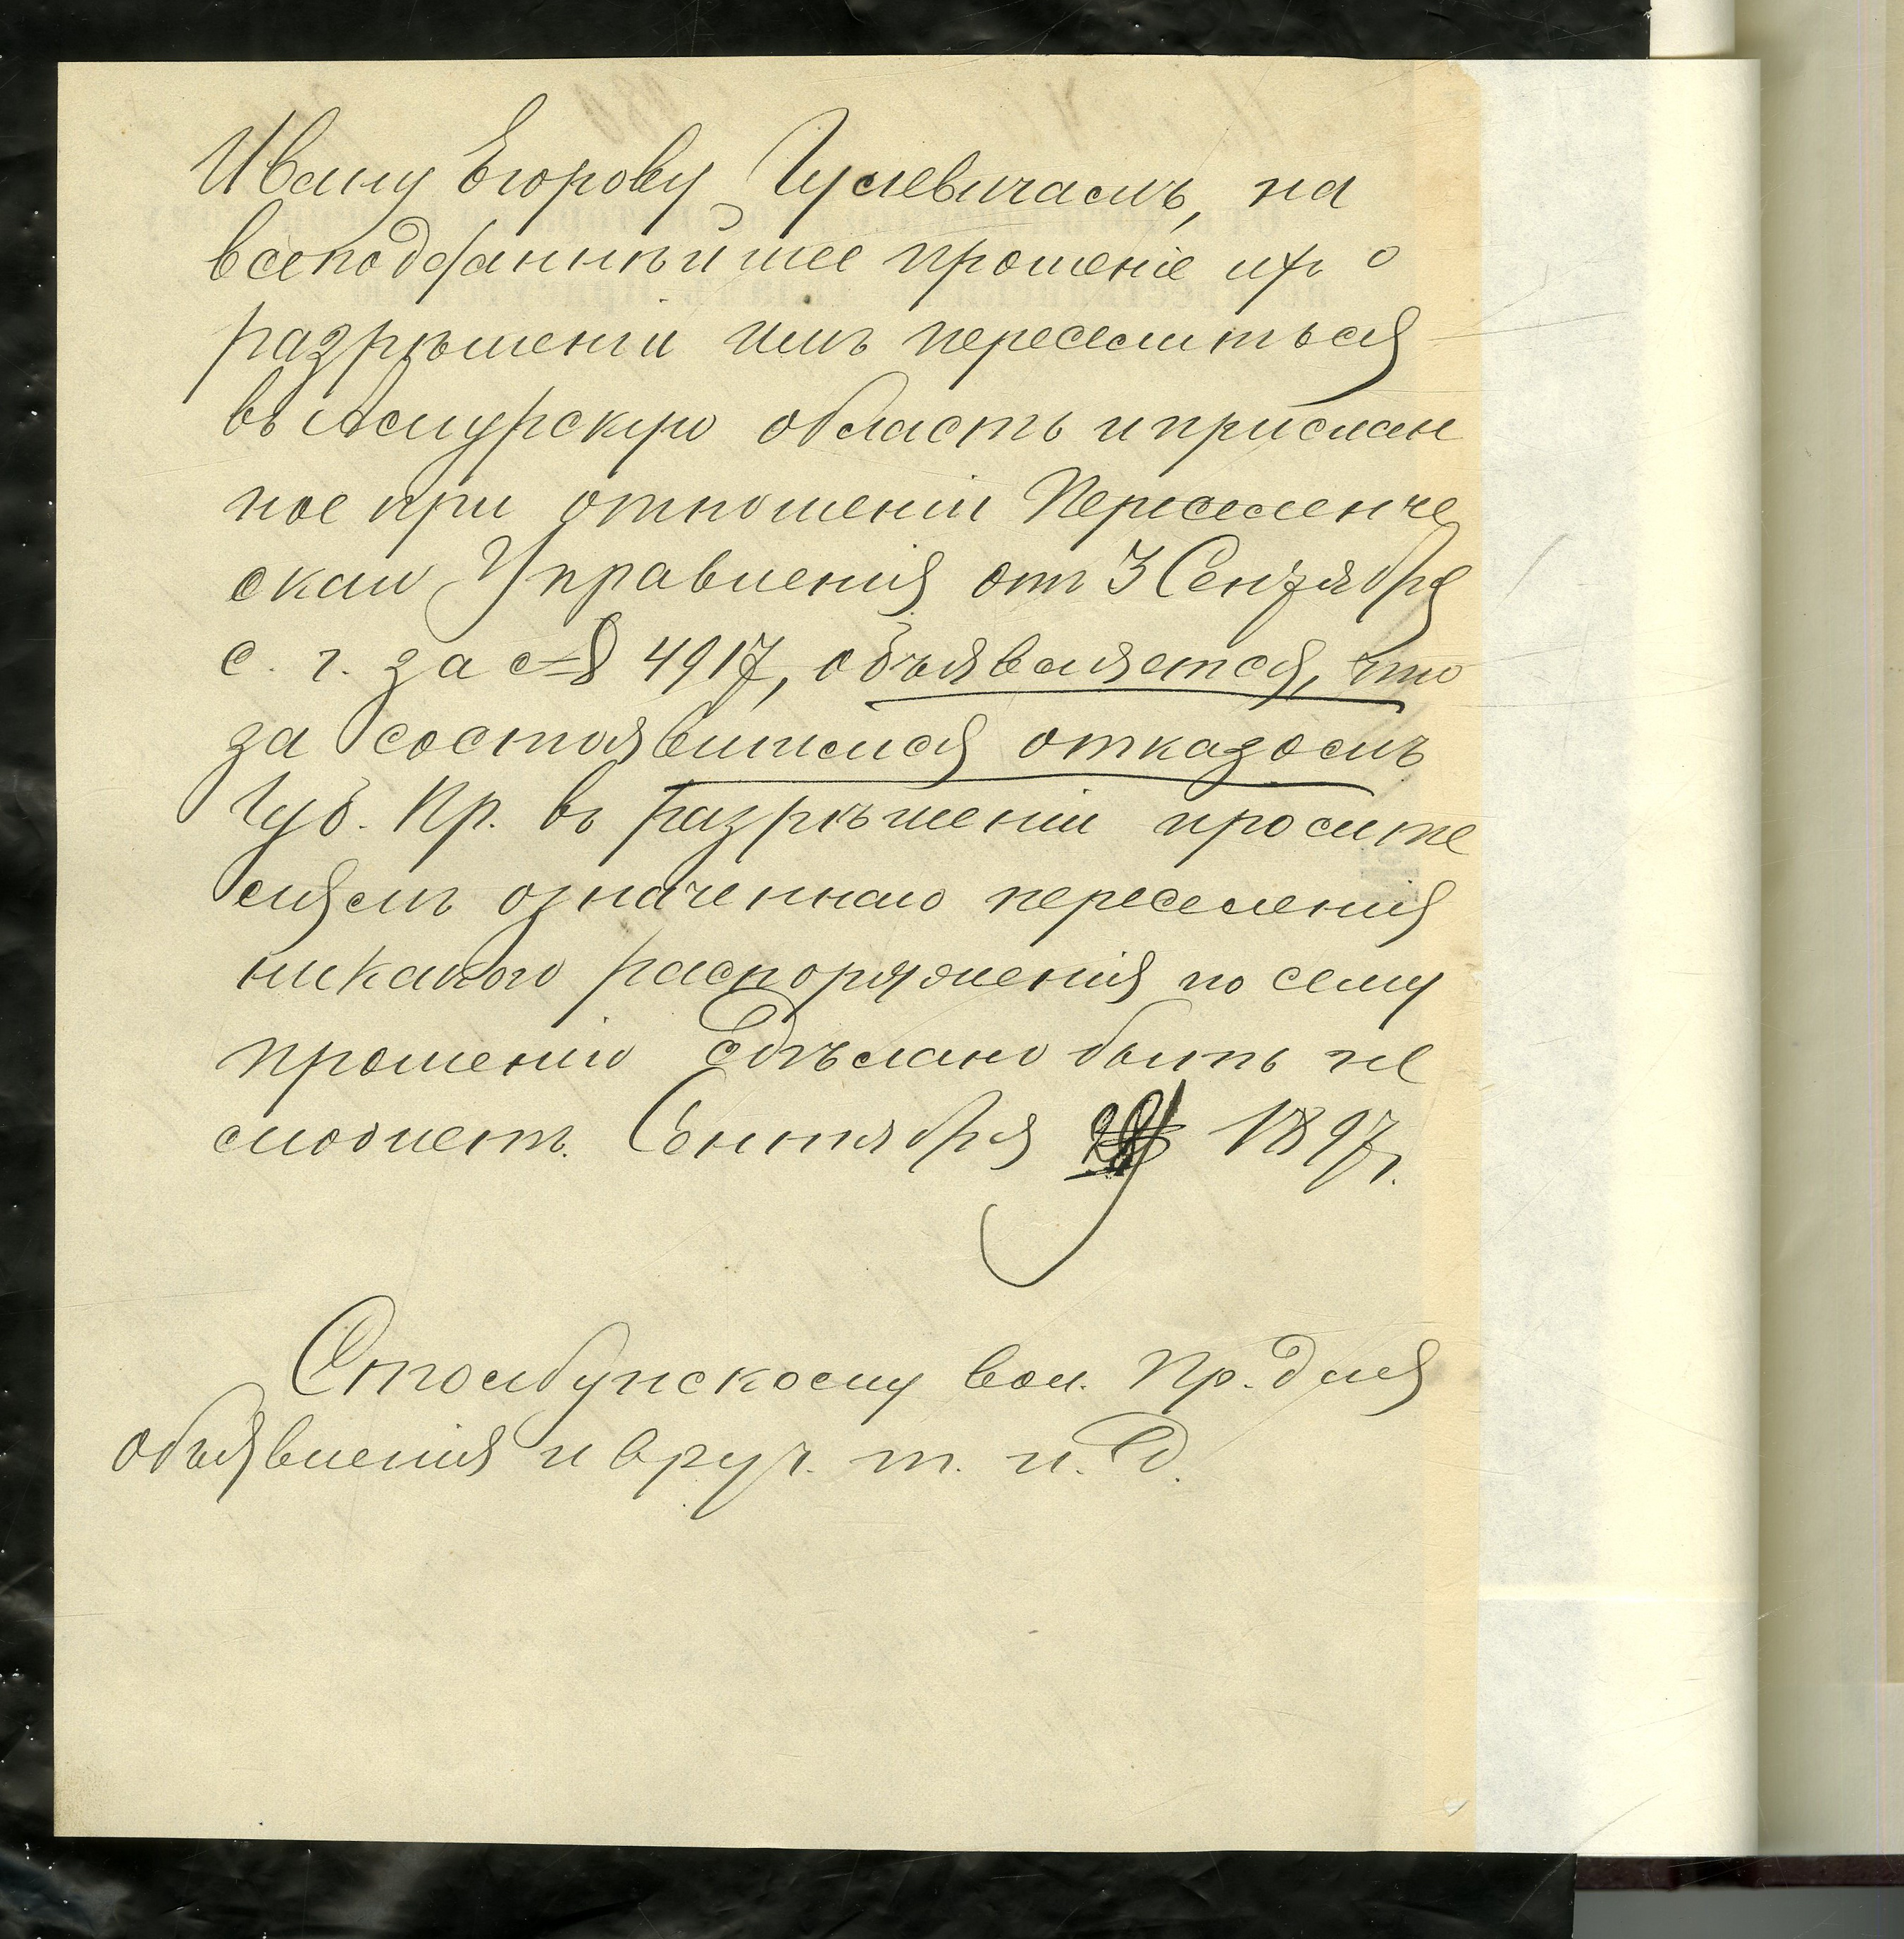 Ивану Егорову Гулевичамъ, на
всеподданнѣйшее прошеніе ихъ о
разрѣшеніи имъ переселиться
въ Амурскую область и прислан
ное при отношеніи Переселенче
скаго Управленія отъ 3 Сентября
с. г. за № 4917, объявляется, что
за состоявшимся отказомъ
Губ. Пр. въ разрѣшеніи просите
лямъ означеннаго переселенія
никакого распоряженія по сему
прошенію сдѣлано быть не
можетъ. Сентября 1897 г.
Столбунскому вол. Пр. для
объявленія и вруч. т. и. д.